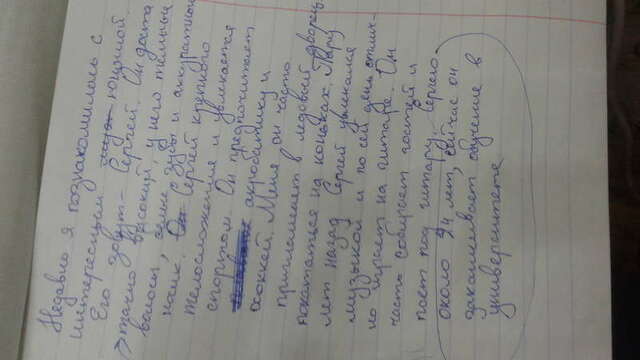 Недавно я познакомилась с
интересным юношей.
Его зовут – Сергей. Он доста
точно высокий, у него тёмные
волосы, зубы и аккуратный
носик. Сергей крупного
телосложения и увлекается
спортом. Он предпочитает
акробатику и
хоккей. Меня он часто
приглашает в ледовый дворец
покататься на коньках. Пару
лет назад Сергей увлекался
музыкой и по сей день отлич-
но играет на гитаре. Он
часто собирает гостей и
поёт под гитару. Сергею
около 24 лет, сейчас он
заканчивает обучение в
университете